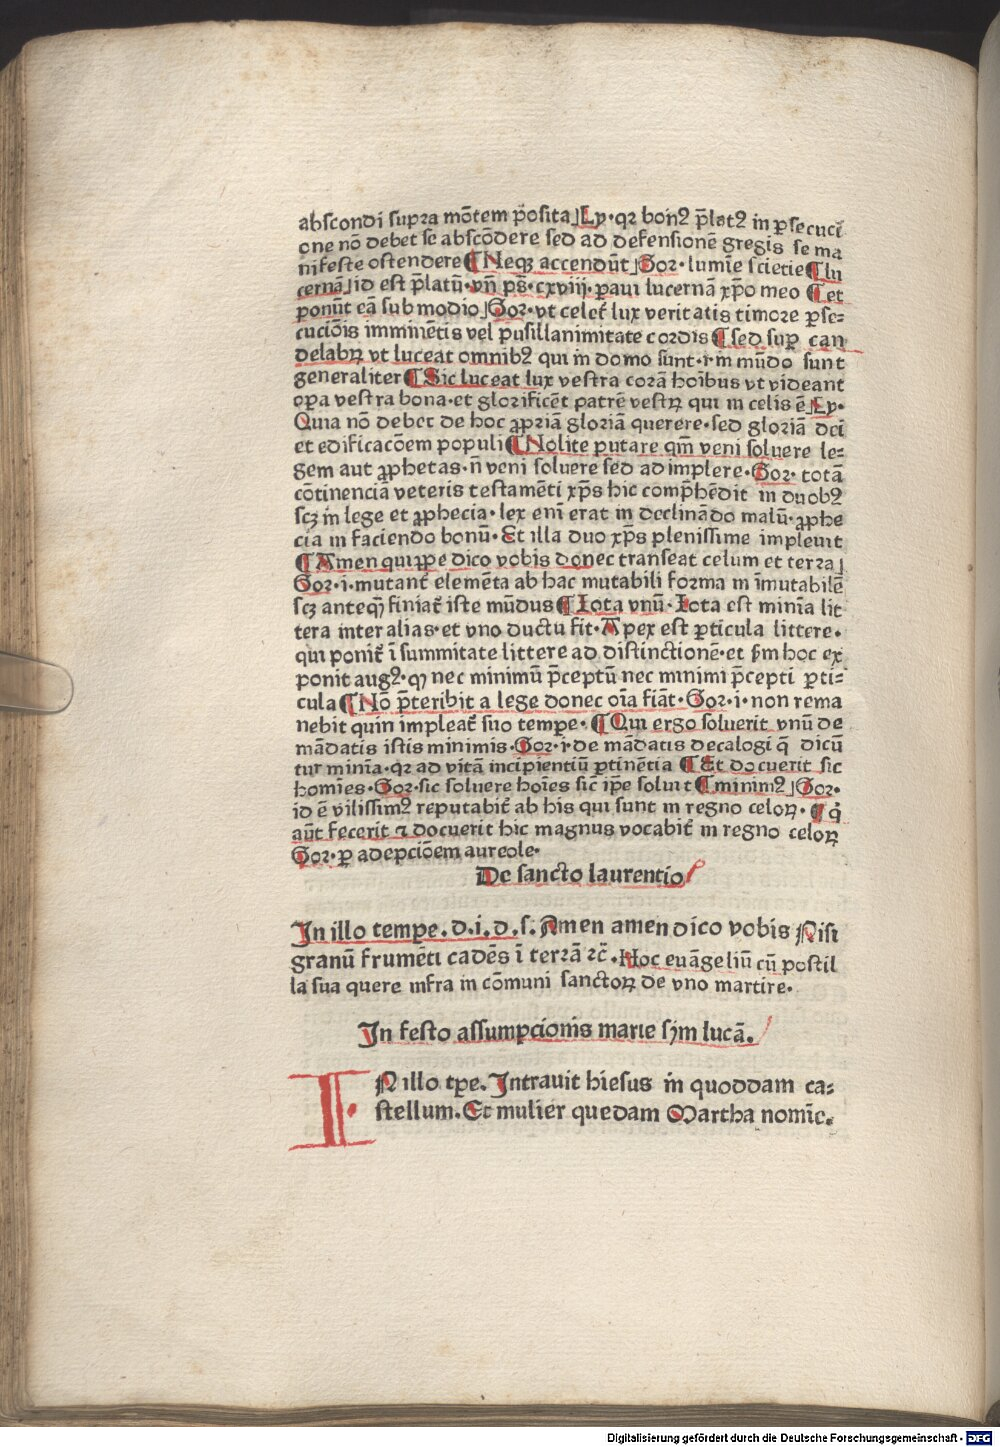 abscondi supra mōtem posita⌋Ly·qꝛ bonꝰ p̄latꝰ in ꝑsecuci
one nō debet se abscōdere sed ad defensionē gregis se ma
nifeste ostendere ¶ Neqꝫ accendūt⌋Gor·lumīe sciētie ¶ lu
cernā⌋id est p̄latū·vn̄ ps̄·cxviij·ꝑaui lucernā xp̄o meo ¶ et
ponūt eā sub modio⌋Gor·vt celet᷑ lux veritatis timore ꝑse⸗
cuciōis imminētis vel pusillanimitate cordis ¶ sed suꝑ can
delabꝝ vt luceat omnibꝰ qui in domo sunt·i·in mūdo sunt
generaliter ¶ Sic luceat lux vestra corā hoībus vt videant
oꝑa vestra bona·et glorificēt patrē vestꝝ qui in celis ē⌋Ly·
Quia nō debet de hoc ꝓpriā gloriā querere·sed gloriā dei
et edificacōem populi ¶ Nolite putare qm̄ veni soluere le⸗
gem aut ꝓphetas·n̄ veni soluere sed adimplere·Gor·totā
cōtinenciā veteris testamēti xp̄s hic comp̄hēdit in duobꝰ
scꝫ in lege et ꝓphecia·lex eni erat in declinādo malū·ꝓphe
cia in faciendo bonū·Et illa duo xp̄s plenissime impleuit
¶ Amen quippe dico vobis donec transeat celum et terra⌋
Gor·i·mutant᷑ elemēta ab hac mutabili forma in īmutabilē
scꝫ anteqꝫ finiat᷑ iste mūdus ¶ Iota vnū·Iota est minīa lit
tera inter alias·et vno ductu fit·Apex est ꝑticula littere·
qui ponit᷑ ī summitate littere ad distinctionē·et ẜm hoc ex
ponit augꝰ·ꝙ nec minimū p̄ceptū nec minimi p̄cepti ꝑti⸗
cula ¶ Nō p̄teribit a lege donec oīa fiāt·Gor·i·non rema
nebit quin impleat᷑ suo tempe·¶ Qui ergo soluerit vnū de
mādatis istis minimis·Gor·i·de mādatis decalogi q̄ dicū
tur minīa·qꝛ ad vitā incipientiū ꝑtinētia ¶ Et docuerit sic
homīes·Gor·sic soluere hoīes sic ip̄e soluit ¶ minimꝰ⌋Gor·
id ē vilissimꝰ reputabit᷑ ab his qui sunt in regno celoꝝ·¶ q̇
aūt fecerit ⁊ docuerit hic magnus vocabit᷑ in regno celoꝝ
Gor·ꝑ adepciōem aureole·
De sancto laurentio
In illo tempe.d.i.d.s.Amen amen dico vobis Nisi
granū frumēti cadēs ī terrā ⁊c̄.Hoc euāgeliū cū postil
la sua quere infra in cōmuni sanctoꝝ de vno martire·
In festo assumpcionis marie sm̄ lucā.
IN illo tꝑe. Intrauit hiesus in quoddam ca⸗
stellum. Et mulier quedam Martha nomīe.
Digitalisierung gefördert durch die Deutsche Forschungsgemeinschaft - DFG